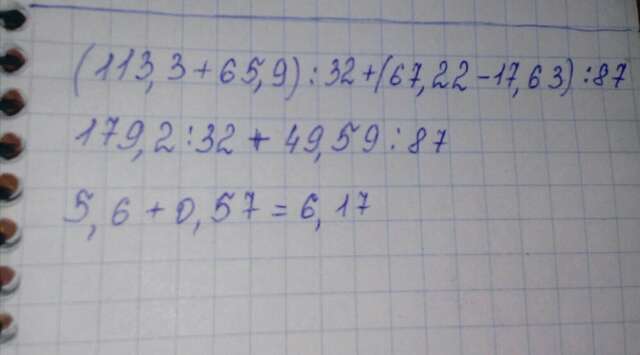 (113,3+65,9):32+(67,22-17,63):87
179,2:32+49,59:87
5,6+0,57=6,17